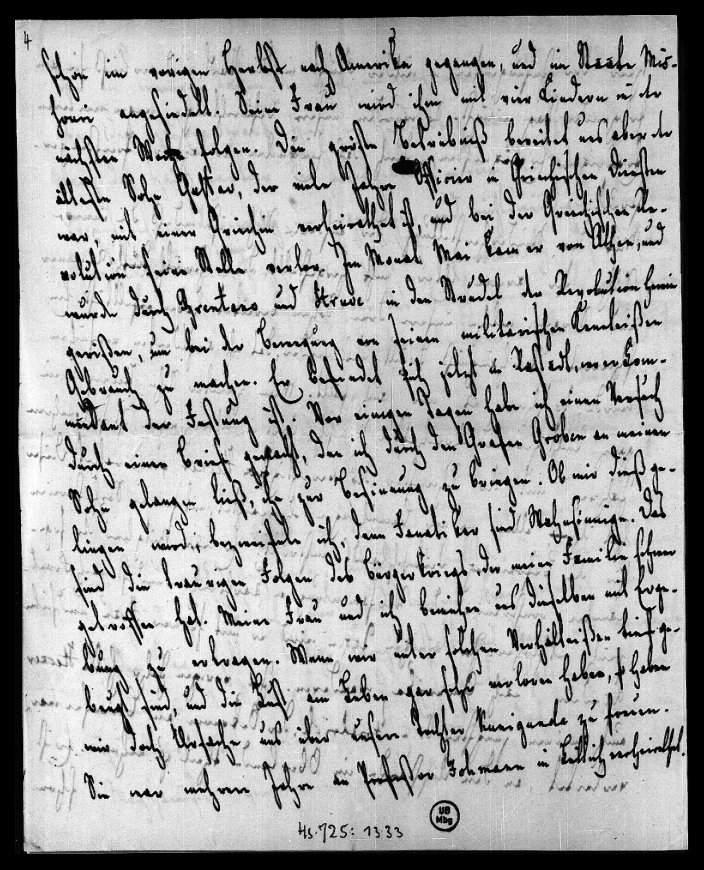 4
schon im vorigen Herbst nach Amerika gegangen, und im Staate Mis-
souri angesiedelt. Seine Frau wird ihm mit vier Kindern in der
nächsten Woche folgen. Die größte Betrübniß bereitet uns aber der
älteste Sohn Gustav, der viele Jahre Officier in Griechischen Diensten
war, mit einer Griechin verheirathet ist, und bei der Griechischen Re-
volution seine Stelle verlor. Im Monat Mai kam er von Athen, und
wurde durch Brentano und Struve in den Strudel der Revolution hinein
gerißen, um bei der Bewegung von seinen militärischen Kentnißen
Gebrauch zu machen. Er befindet sich jetzt in Rastadt, wo er Com-
mandant der Festung ist. Vor einigen Tagen habe ich einen Versuch
durch einen Brief gemacht, den ich durch den Grafen Gröben an meinen
Sohn gelangen ließ, ihn zur Besinnung zu bringen. Ob mir dieß ge-
lingen wird, bezweifele ich, denn Fanatiker sind Wahnsinnige. Das
sind die traurigen Folgen des Bürgerkriegs, der meine Familie schwer
getroffen hat. Meine Frau und ich bemühen uns dieselben mit Erge-
bung zu ertragen. Wenn wir unter solchen Verhältnißen tief ge-
beugt sind, und die Lust am Leben gar sehr verloren haben, so haben
wir doch Ursache uns über unsere Tochter Kunigunda zu freuen.
Sie war mehrere Jahre an Professor Fohmann in Lüttich verheirathet.
Hs. 725: 1333
UB
Mbg